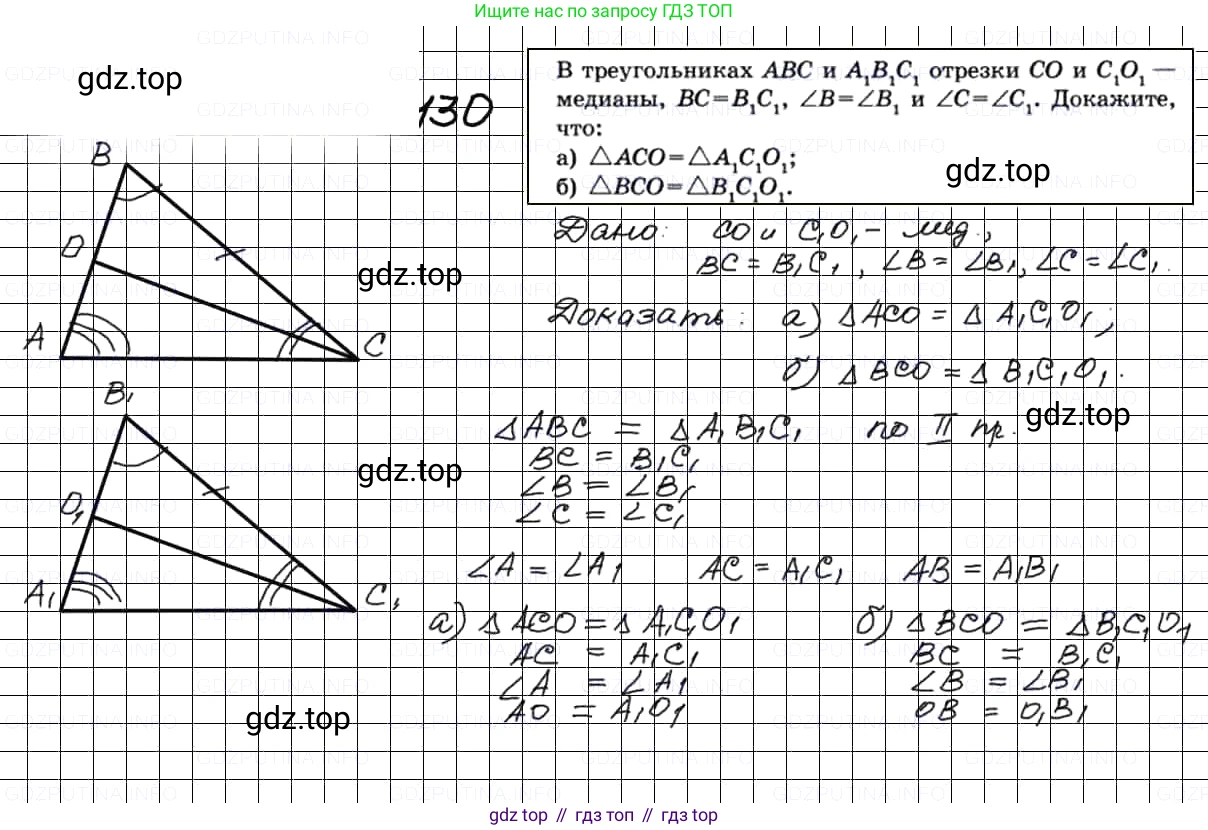 Ищите нас по запросу ГДЗ ТОП
gdz.top
130
В треугольниках ABC и A₁B₁C₁ отрезки CO и C₁O₁ —
медианы, BC=B₁C₁, ∠B=∠B₁ и ∠C=∠C₁. Докажите,
что:
а) △ACO=△A₁C₁O₁;
б) △BCO=△B₁C₁O₁.
gdz.top
Дано: CO и C₁O₁ - мед.,
BC = B₁C₁, ∠B = ∠B₁, ∠C = ∠C₁.
Доказать: а) △ACO = △A₁C₁O₁;
б) △BCO = △B₁C₁O₁.
B
O
A
C
gdz.top
B₁
O₁
A₁
C₁
gdz.top
gdz.top
△ABC = △A₁B₁C₁ по II пр.
BC = B₁C₁
∠B = ∠B₁
∠C = ∠C₁
∠A = ∠A₁ AC = A₁C₁ AB = A₁B₁
а) △ACO = △A₁C₁O₁
AC = A₁C₁
∠A = ∠A₁
AO = A₁O₁
б) △BCO = △B₁C₁O₁
BC = B₁C₁
∠B = ∠B₁
OB = O₁B₁
gdz.top
gdz top // гдз топ // gdz top
GDZPUTINA.INFO